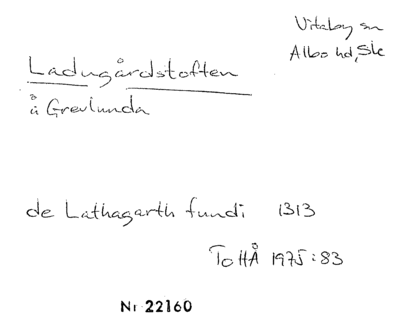 Vitaby sn
Albo hd, Skå
Ladugårdstoften
å Grevlunda
de Lathagarth fundi 1313
ToHÅ 1975:83
Nr 22160